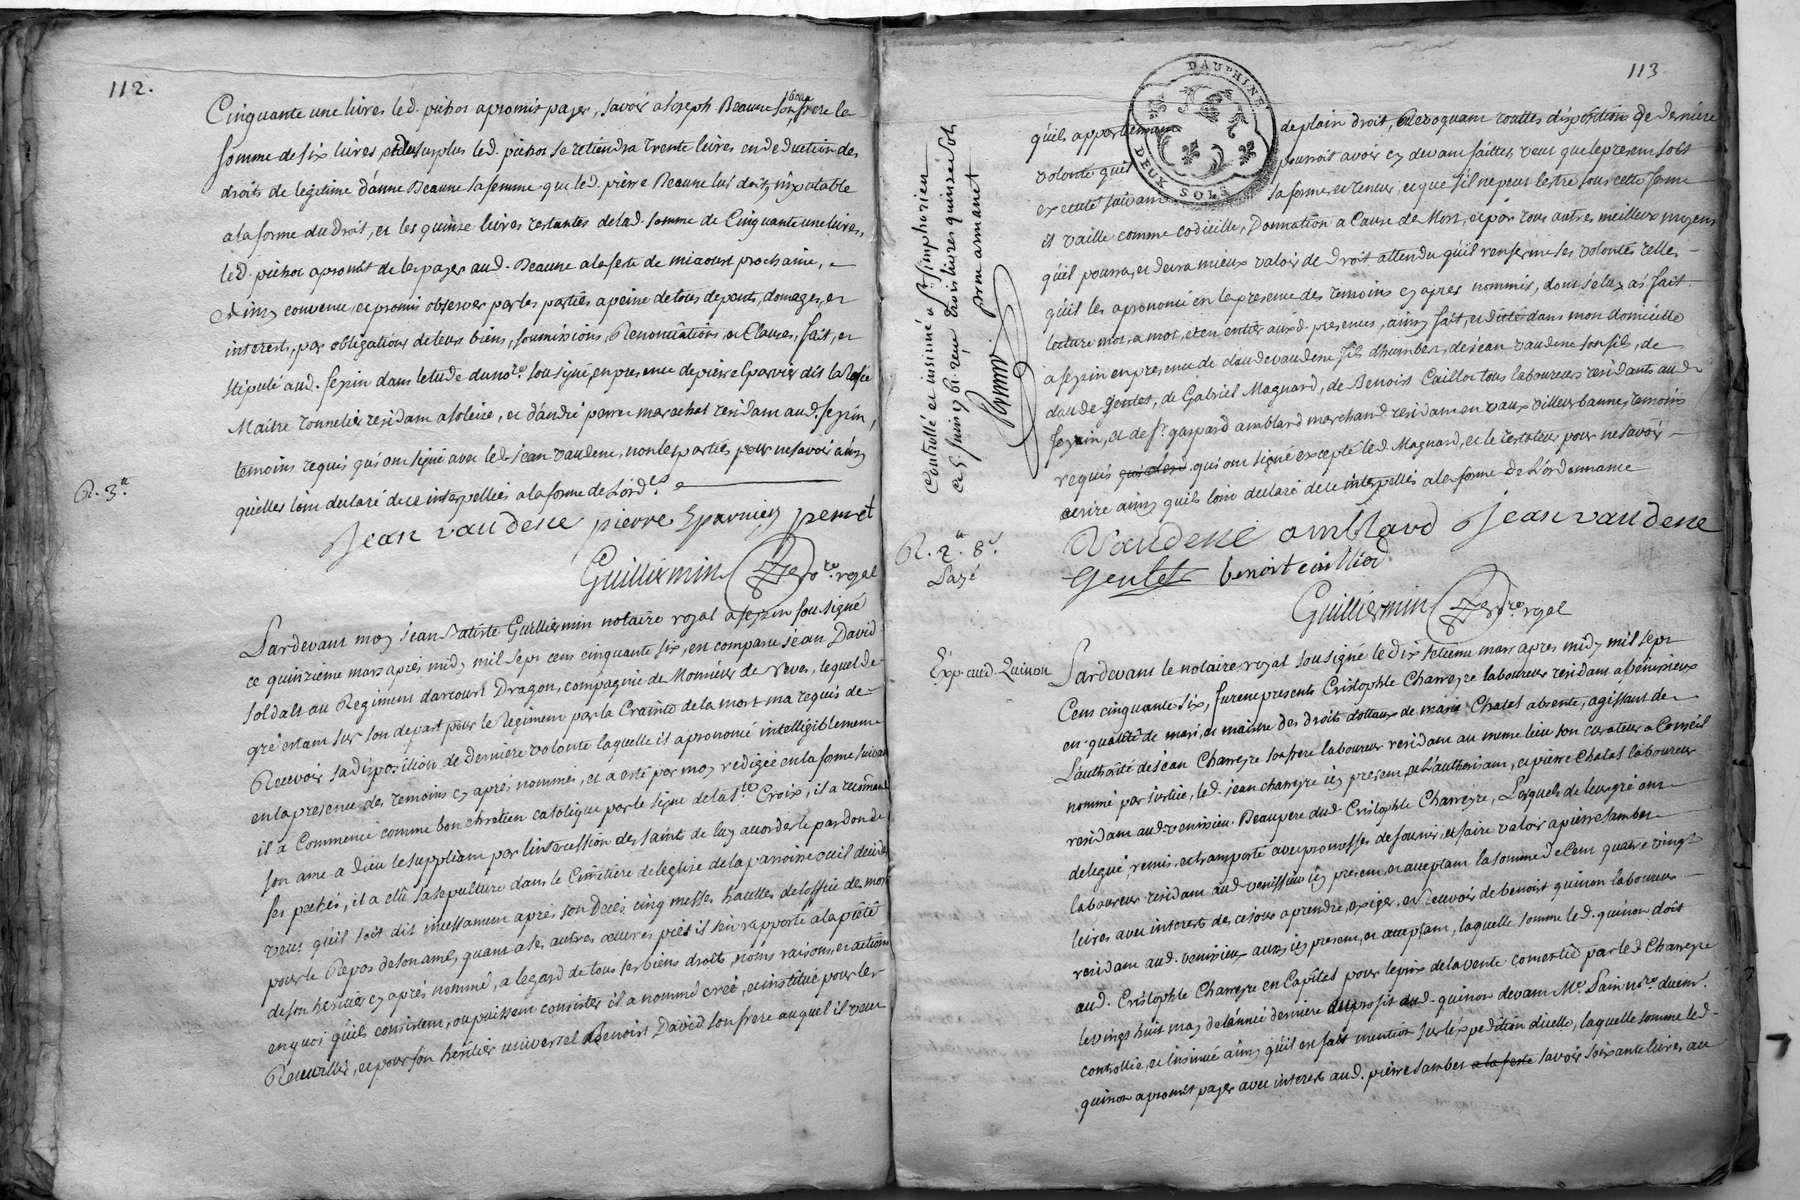 112.
Cinquante une livres led. pichot apromis payer, savoir a Joseph Beaune son beau frere la
somme de six livres, et du surplus led. pichot se retiendra trente livres en deduction des
droits de legitime d'anne Beaune sa femme que led. pierre Beaune lui doit, imputable
a la forme du droit, et les quinze livres restantes de lad. somme de Cinquante une livres,
led. pichot apromit de les payer aud. Beaune a la feste de miaoust prochaine,
ainsy convenu, et promis observer par les parties a peine de tous depents, domages, et
interests, par obligations de leurs biens, soumissions, Renonciations, et Clauses, fait, et
stipulé aud. feyzin dans letude du no.re sousigné, en presence de pierre Eparvier dit la
Maitre tonnelier residant a soleize, et d'andré perret marechal residant aud. feyzin,
temoins requis qui ont signé avec led. jean vaudene, non les parties pour ne savoir ainsy
quelles lont declaré de ce interpellées a la forme de l'ord.ce
R. 3.a
Jean vaudene pierre Eparvier perret
Guilliermin no.re royal
Pardevant moy jean Batiste Guilliermin notaire royal a feyzin sousigné
ce quinzieme mars après midy mil sept cens cinquante six, est comparu jean David
soldat au Regiment darcourt Dragon, compagnie de Monsieur de Reves, lequel de
gré estant sur son depart pour le Regiment par la Crainte de la mort ma requis de
Recevoir sa disposition de derniere volonté laquelle il a prononcé intelligiblement
en la presence des temoins cy après nommés, et a esté par moy redigée en la forme suivante
il a Commencé comme bon chretien catolique par le signe de la s.te Croix, il a recomandé
son ame a Dieu le suppliant par l'intercession des saints de luy accorder le pardon de
ses pechés, il a elu sa sepulture dans le Cimitiere de leglise de la parroisse ou il decedera
veut qu'il soit dit incessament après son Decès cinq messes hauttes de loffice des morts
pour le Repos de son ame, quant a ses autres œuvres pies il s'en rapporte à la pieté
de son heritier cy après nommé, a legard de tous ses biens droits, noms raisons, et actions
en quoi qu'ils consistent, ou puissent consister il a nommé creé, et institué pour les
Recueillir, et pour son heritier universel Benoist David son frere auquel il veut
113
DAUPHINE
DEUX SOLS
qu'ils appartiennent de plain droit, Revoquant touttes dispositions de derniere
volonté qu'il pourroit avoir cy devant faittes veut que le present soit
executé suivant sa forme et teneur, et que s'il ne peut lestre sous cette forme
il vaille comme codicille, Donnation a Cause de Mort, et par tous autres meilleurs moyens
qu'il pourra, et devra mieux valoir de droit attendu qu'il renferme ses volontés telles
qu'il les a prononcé en la presence des temoins cy après nommés, dont s'elui as fait
lecture mot, a mot, et en entier auxd. presences, ainsy fait, et dicté dans mon domicille
a feyzin en presence de claude vaudene fils d'humbert, de jean vaudene son fils, de
claude Gentet, de Gabriel Magnard, de Benoist Caillot tous laboureurs residants aud.
feyzin, et de s.r gaspard amblard marchand residant en vaux villeurbanne, temoins
requis qui ont signé excepté led. Magnard, et le testateur pour ne savoir
ecrire ainsy quils lont declaré de ce interpellés a la forme de L'ordonnance
Controllé et insinué a S.t simphorien
ce 5 juin 1761 reçu trois livres quinze sols
prnm armanet
R. 2.a 8.s
Payé
Vaudene amblard Jean vaudene
Gentet benoit caillod
Guilliermin no.re royal
Exp. aud. Quinon
Pardevant le notaire royal sousigné le dix septieme mars apres midy mil sept
Cens cinquante six, furent presents Cristophle Charreyre laboureur residant a venissieux
en qualité de mari, et maitre des droits dottaux de marie Chatel absente, agissant de
L'authorité de jean Charreyre son frere laboureur residant au meme lieu son curateur a Conseil
nommé par justice, led. jean charreyre icy present, et L'authorisant, et pierre Chatel laboureur
residant aud. venissieu Beaupere dud. Cristophle Charreyre, Lesquels de leur gré ont
delegué remis, et transporté avec promesses de fournir, et faire valoir a pierre Sambet
laboureur residant aud. venissieu icy present et acceptant la somme de Cent quatre vingt
livres avec interests de ce jour a prendre, exiger, et Recevoir de benoist quinon laboureur
residant aud. venissieux aussy icy present, et acceptant, laquelle somme led. quinon doit
aud. Cristophle Charreyre en Capital pour le prix de la vente consentie par led Charreyre
le vingt huit may de lannée derniere au profit dud. quinon devant M.e Pain no.re duem.t
controllée, et insinuée ainsy qu'il en fait mention sur lexpedition dicelle, laquelle somme led.
quinon a promit payer avec interests aud. pierre sambet a la feste savoir soixante livres au